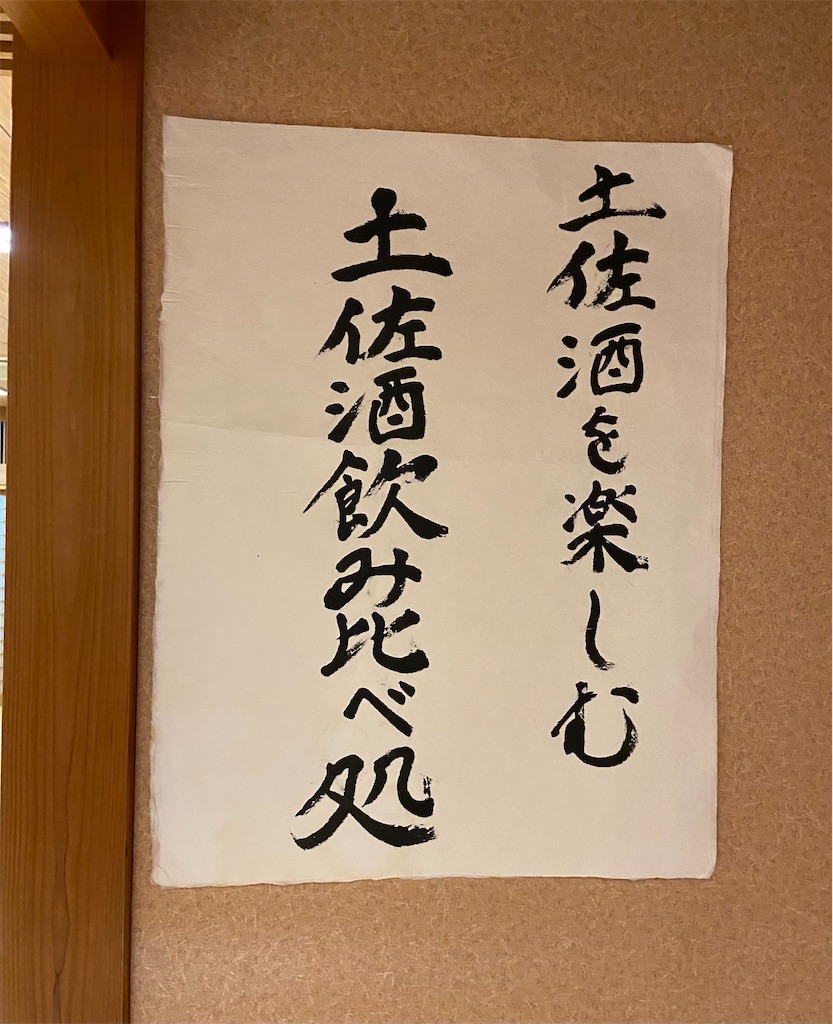 土佐酒を楽しむ
土佐酒飲み比べ処